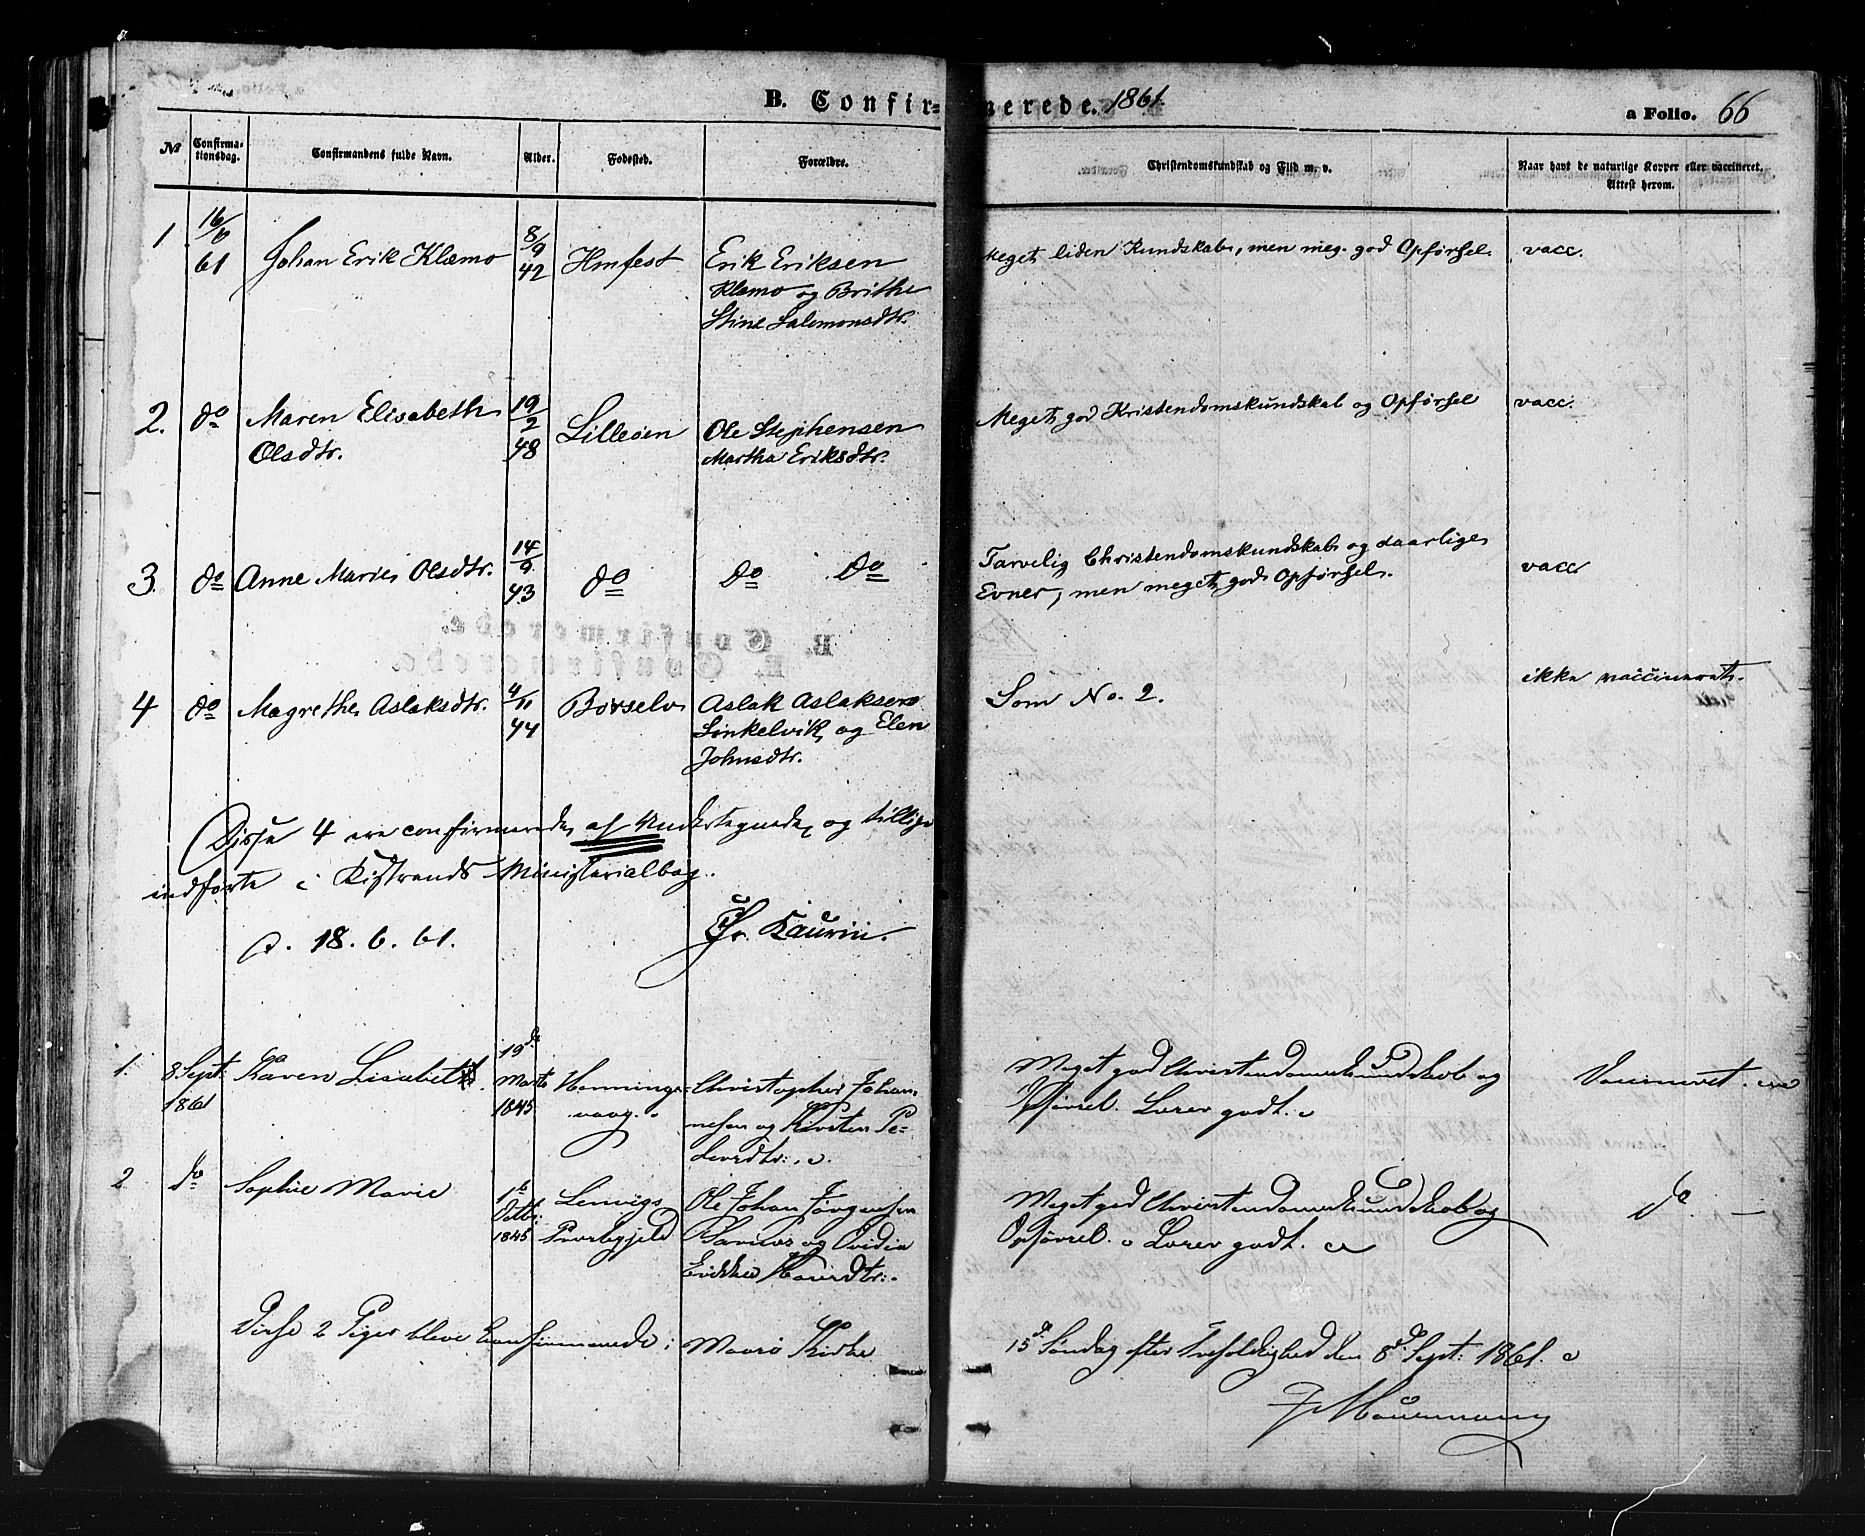 B. Confirmerede. 1861.
a Folio. 66
No Confirmationsdag. Confirmandens fulde Navn. Alder. Fødested. Forældre. Christendomskundskab og Flid m. v. Naar havt de naturlige Kopper eller vaccineret. Attest herom.
1 16/6 61 Johan Erik Klæmo 8/9 42 Hmfest Erik Eriksen Meget liden Kundskab, men meg. god Opførsel. vacc.
Klæmo og Brithe
Stine Salomonsdtr.
2. do Maren Elisabeth 19/2 48 Lilleøen Ole Stephensen Meget god Kristendomskundskab og Opførsel vacc.
Olsdtr. Martha Eriksdtr.
3. do Anne Marie Olsdtr. 14/9 43 do do do Tarvelig Christendomskundskab og daarlige vacc
Evner, men meget god Opførsel.
4 do Magrethe Aslaksdtr. 4/11 44 Børselv Aslak Aslaksen Som No. 2. ikke vaccineret.
og Elen
Johnsdtr.
Disse 4 ere confirmerede af Undertegnede og tillige
indførte i Kistrands Ministerialbog.
d. 18. 6. 61. Kaurin.
1. 8 Sept: 1861 Karen Lisabeth 19de Marts 1845 Honningsvaag. Christopher Johannesen og Kirsten Pedersdtr: Meget god Christendomskundskab og
Opførsel. Læser godt. Vaccineret.
2 do Sophie Marie 1te Octbr: 1845 Lenvigs Præstegjeld Ole Johan Jørgensen Meget god Christendomskundskab og do
og Ovidia Opførsel. Læser godt.
Disse 2 Piger bleve Confirmerede i Maasø Kirke 15de Søndag efter Trefoldighed den 8de Sept: 1861.